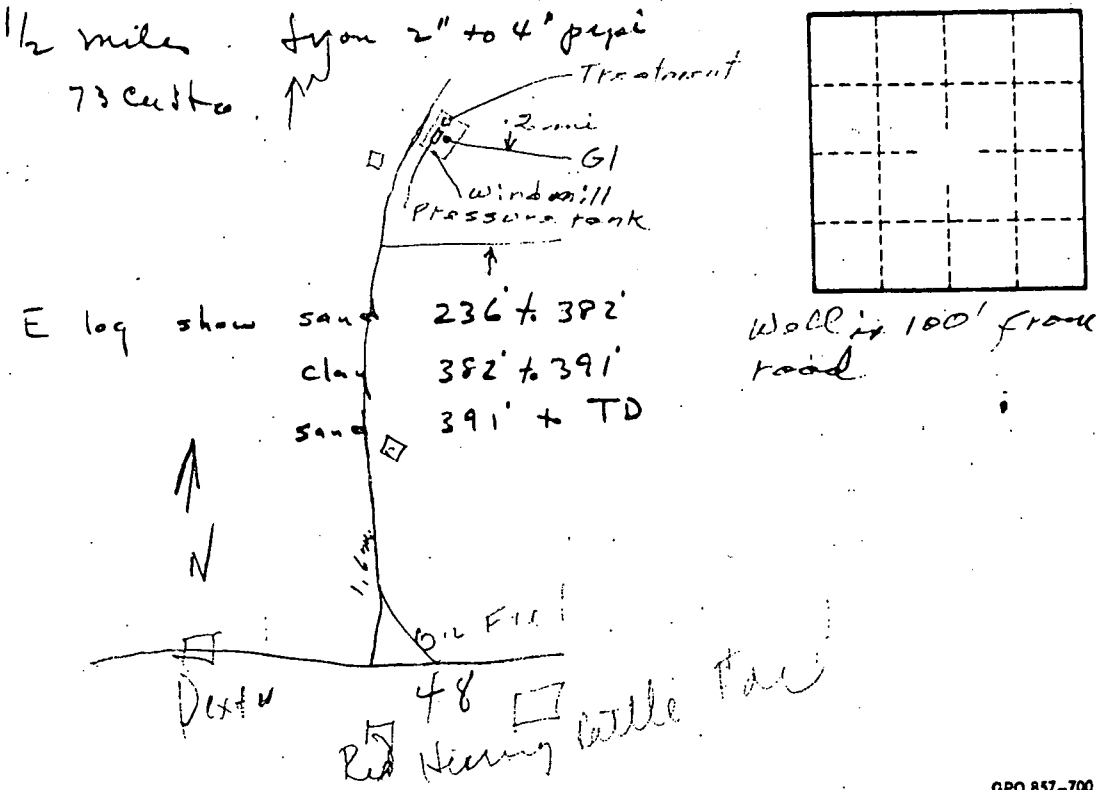 1/2 miles. 2" to 4"
73
N
Treatment
.2 mi
G1
windmill
Pressure tank
E log show sand 236' to 382'
clay 382' to 391'
sand 391' to TD
Well is 100' from
road
N
1.6 mi.
Oil
Dexter
48
Red
Cattle
GPO 857-700